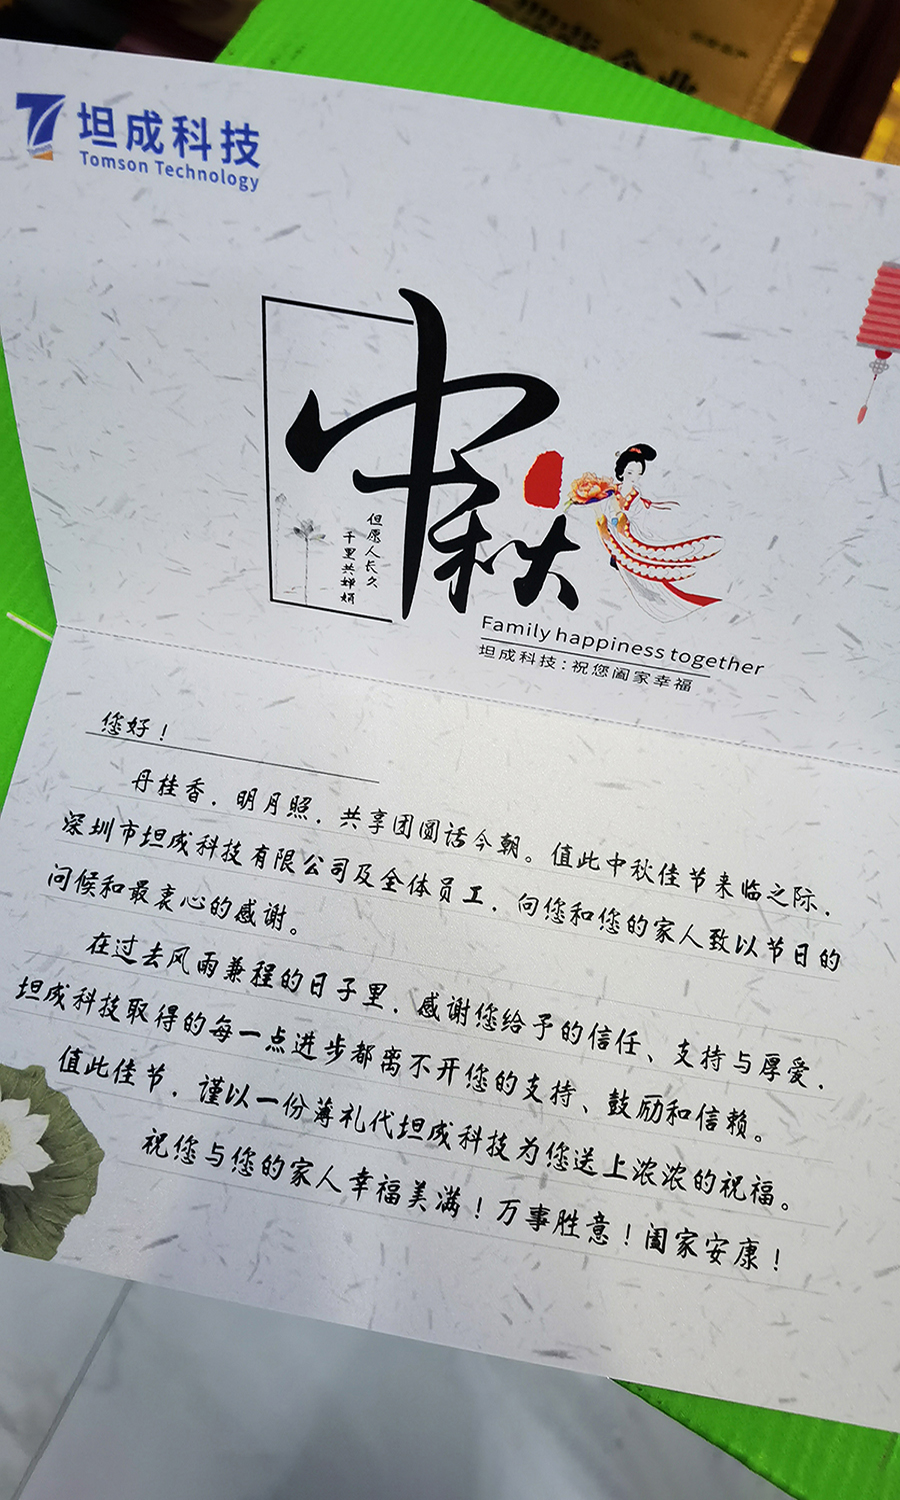 坦成科技
Tomson Technology
中秋
但愿人长久
千里共婵娟
Family happiness together
坦成科技：祝您阖家幸福
您好！
丹桂香，明月照，共享团圆话今朝。值此中秋佳节来临之际，
深圳市坦成科技有限公司及全体员工，向您和您的家人致以节日的
问候和最衷心的感谢。
在过去风雨兼程的日子里，感谢您给予的信任、支持与厚爱，
坦成科技取得的每一点进步都离不开您的支持、鼓励和信赖。
值此佳节，谨以一份薄礼代坦成科技为您送上浓浓的祝福。
祝您与您的家人幸福美满！万事胜意！阖家安康！